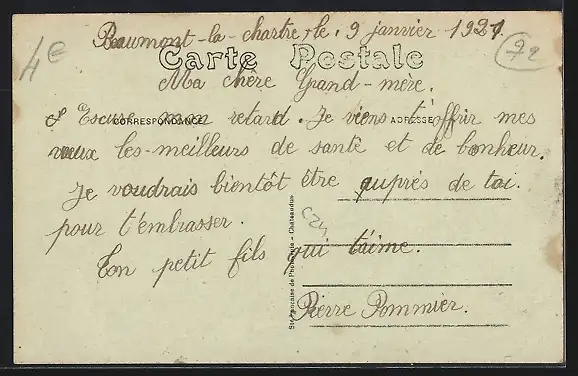 4e
Beaumont-la-chartre, le, 9 janvier 1921.
72
Carte Postale
Ma chère Grand-mère.
Escuse mon retard. Je viens t'offrir mes
CORRESPONDANCE
ADRESSE
vœux les-meilleurs de santé et de bonheur.
Je voudrais bientôt être auprès de toi.
pour t'embrasser.
C24
Ton petit fils qui t'aime.
Pierre Pommier.
Sté Française de Phototypie - Châteaudun